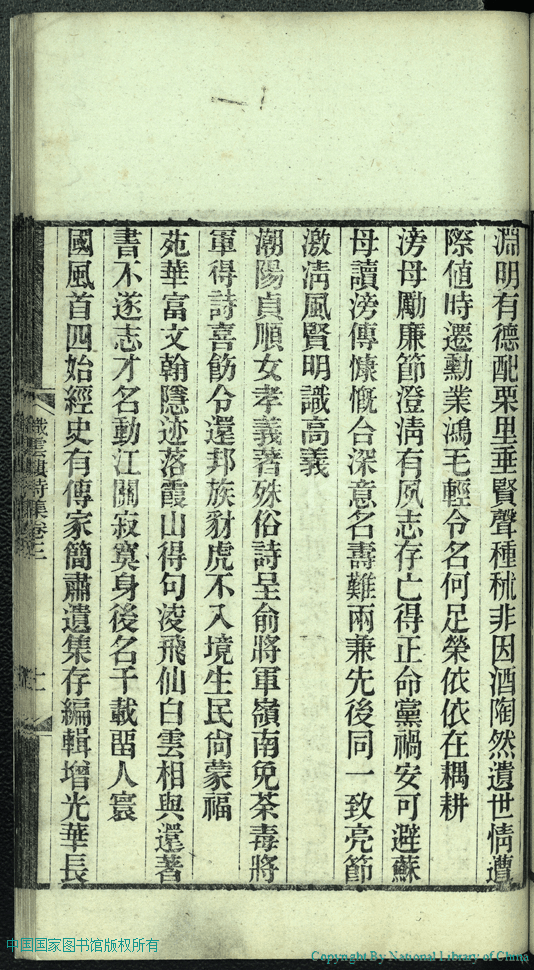 淵明有德配栗里垂賢聲種秫非因酒陶然遺世情遭
際値時遷勳業鴻毛輕令名何足榮依依在耦耕
滂母勵廉節澄淸有夙志存亡得正命黨禍安可避蘇
母讀滂傳慷慨含深意名壽難兩兼先後同一致亮節
激淸風賢明識高義
潮陽貞順女孝義著殊俗詩呈俞將軍嶺南免荼毒將
軍得詩喜飭令還邦族豺虎不入境生民尙蒙福
苑華富文翰隱迹落霞山得句凌飛仙白雲相與還著
書不遂志才名動江關寂寞身後名千載畱人寰
國風首四始經史有傳家簡肅遺集存編輯增光華長
織雲樓詩集卷三
十一
中国国家图书馆版权所有
Copyright By National Library of China